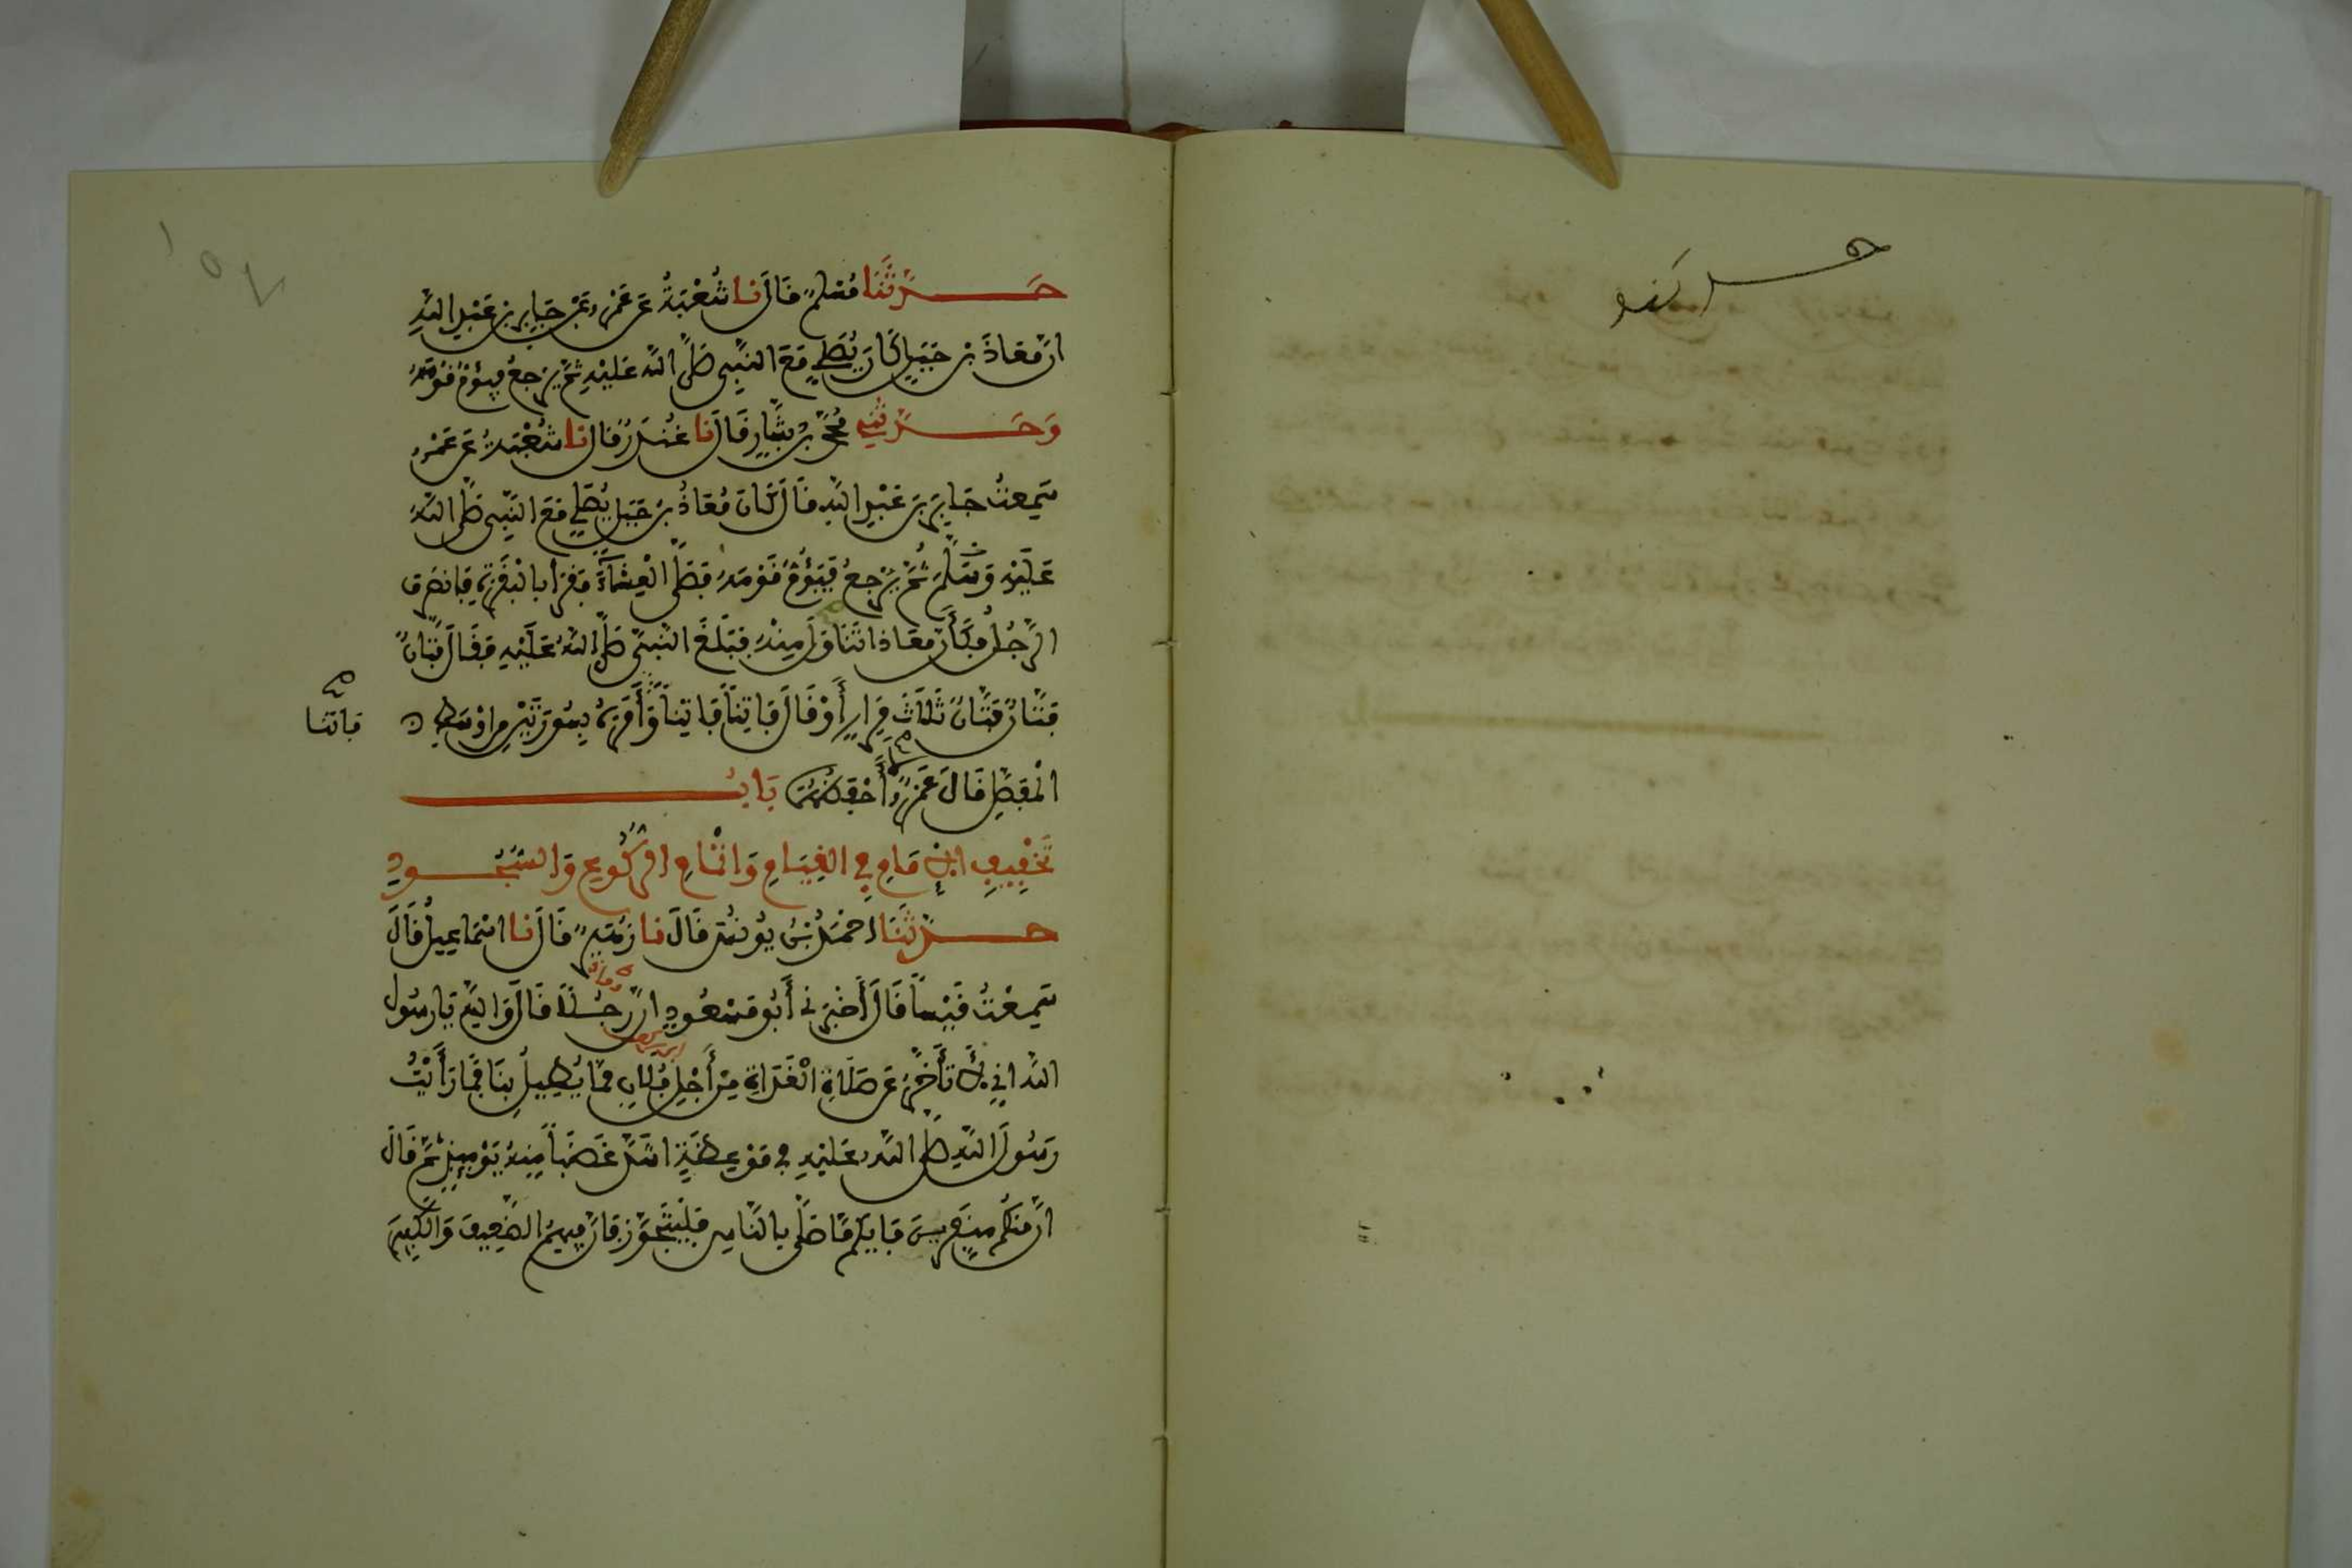 حَدَّثَنَا مُسْلِمٌ قَالَ نَا شُعْبَةُ عَن عَمْرٍو عَن جَابِرِ بنِ عَبْدِ اللَّهِ
انَّ مُعَاذَ بْنَ جَبَلٍ كَانَ يُصَلِّي مَعَ النَّبِيِّ صَلَّى اللَّه عَلَيْهِ ثُمَّ يَرْجِعُ فَيَؤُمُّ قَوْمَهُ
وَحَدَّثَنِي مُحَمَّدُ بْنُ بَشَّارٍ قَالَ نَا غُنْدَرٌ قَالَ نَا شُعْبَةُ عَن عَمْرٍو
سَمِعْتُ جَابِرَ بْنَ عَبْدِ اللَّهِ قَالَ كَانَ مُعَاذُ بْنُ جَبَلٍ يُصَلِّي مَعَ النَّبِيِّ صَلَّى اللَّهُ
عَلَيْهِ وَسَلَّمَ ثُمَّ يَرْجِعُ فَيَؤُمُّ قَوْمَهُ فَصَلَّى الْعِشَاءَ فَقَرَأَ بِالْبَقَرَةِ فَانْصَرَفَ
الرَّجُلُ فَكَأَنَّ مُعَاذا تَنَاوَلَ مِنْهُ فَبَلَغَ النَّبِيَّ صَلَّى اللَّهُ عَلَيْهِ فَقَالَ فَتَّانٌ
فَتَّانٌ فَتَّانٌ ثَلَاثَ مِرَارٍ أَوْ قَالَ فَاتِنًا فَاتِنًا وَأَمَرَهُ بِسُورَتَيْنِ مِن اوْسَطِ
فاتنا
الْمُفَصَّلِ قَالَ عَمْرٌو لَا أَحْفَظُهُمَا بَابُ
تَخْفِيفِ الْإِمَامِ فِي الْقِيَامِ وَاتْمَامِ الرُّكُوعِ وَالسُّجُودِ
حَدَّثَنَا احْمَدُ بْنُ يُونُسَ قَالَ نَا زُهَيْرٌ قَالَ نَا اسْمَاعِيلُ قَالَ
سَمِعْتُ قَيْسًا قَالَ أَخْبَرَنِي أَبُو مَسْعُودٍ انَّ رَجُلًا قَالَ وَاللَّهِ يَا رَسُولَ
اللَّهِ انِّي لَأَتَأَخَّرُ عَن صَلَاةِ الْغَدَاةِ مِنْ أَجْلِ فُلَانٍ مِمَّا يُطِيلُ بِنَا فَمَا رَأَيْتُ
رَسُولَ اللَّهِ صَلَّى اللَّهُ عَلَيْهِ فِي مَوْعِظَةٍ اشَدَّ غَضَبًا مِنْهُ يَوْمَئِذٍ ثُمَّ قَالَ
انَّ مِنْكُم مُنَفِّرِينَ فَأَيُّكُم مَا صَلَّى بِالنَّاسِ فَلْيَتَجَوَّزْ فَانَّ فِيهِمُ الضَّعِيفَ وَالْكَبِيرَ